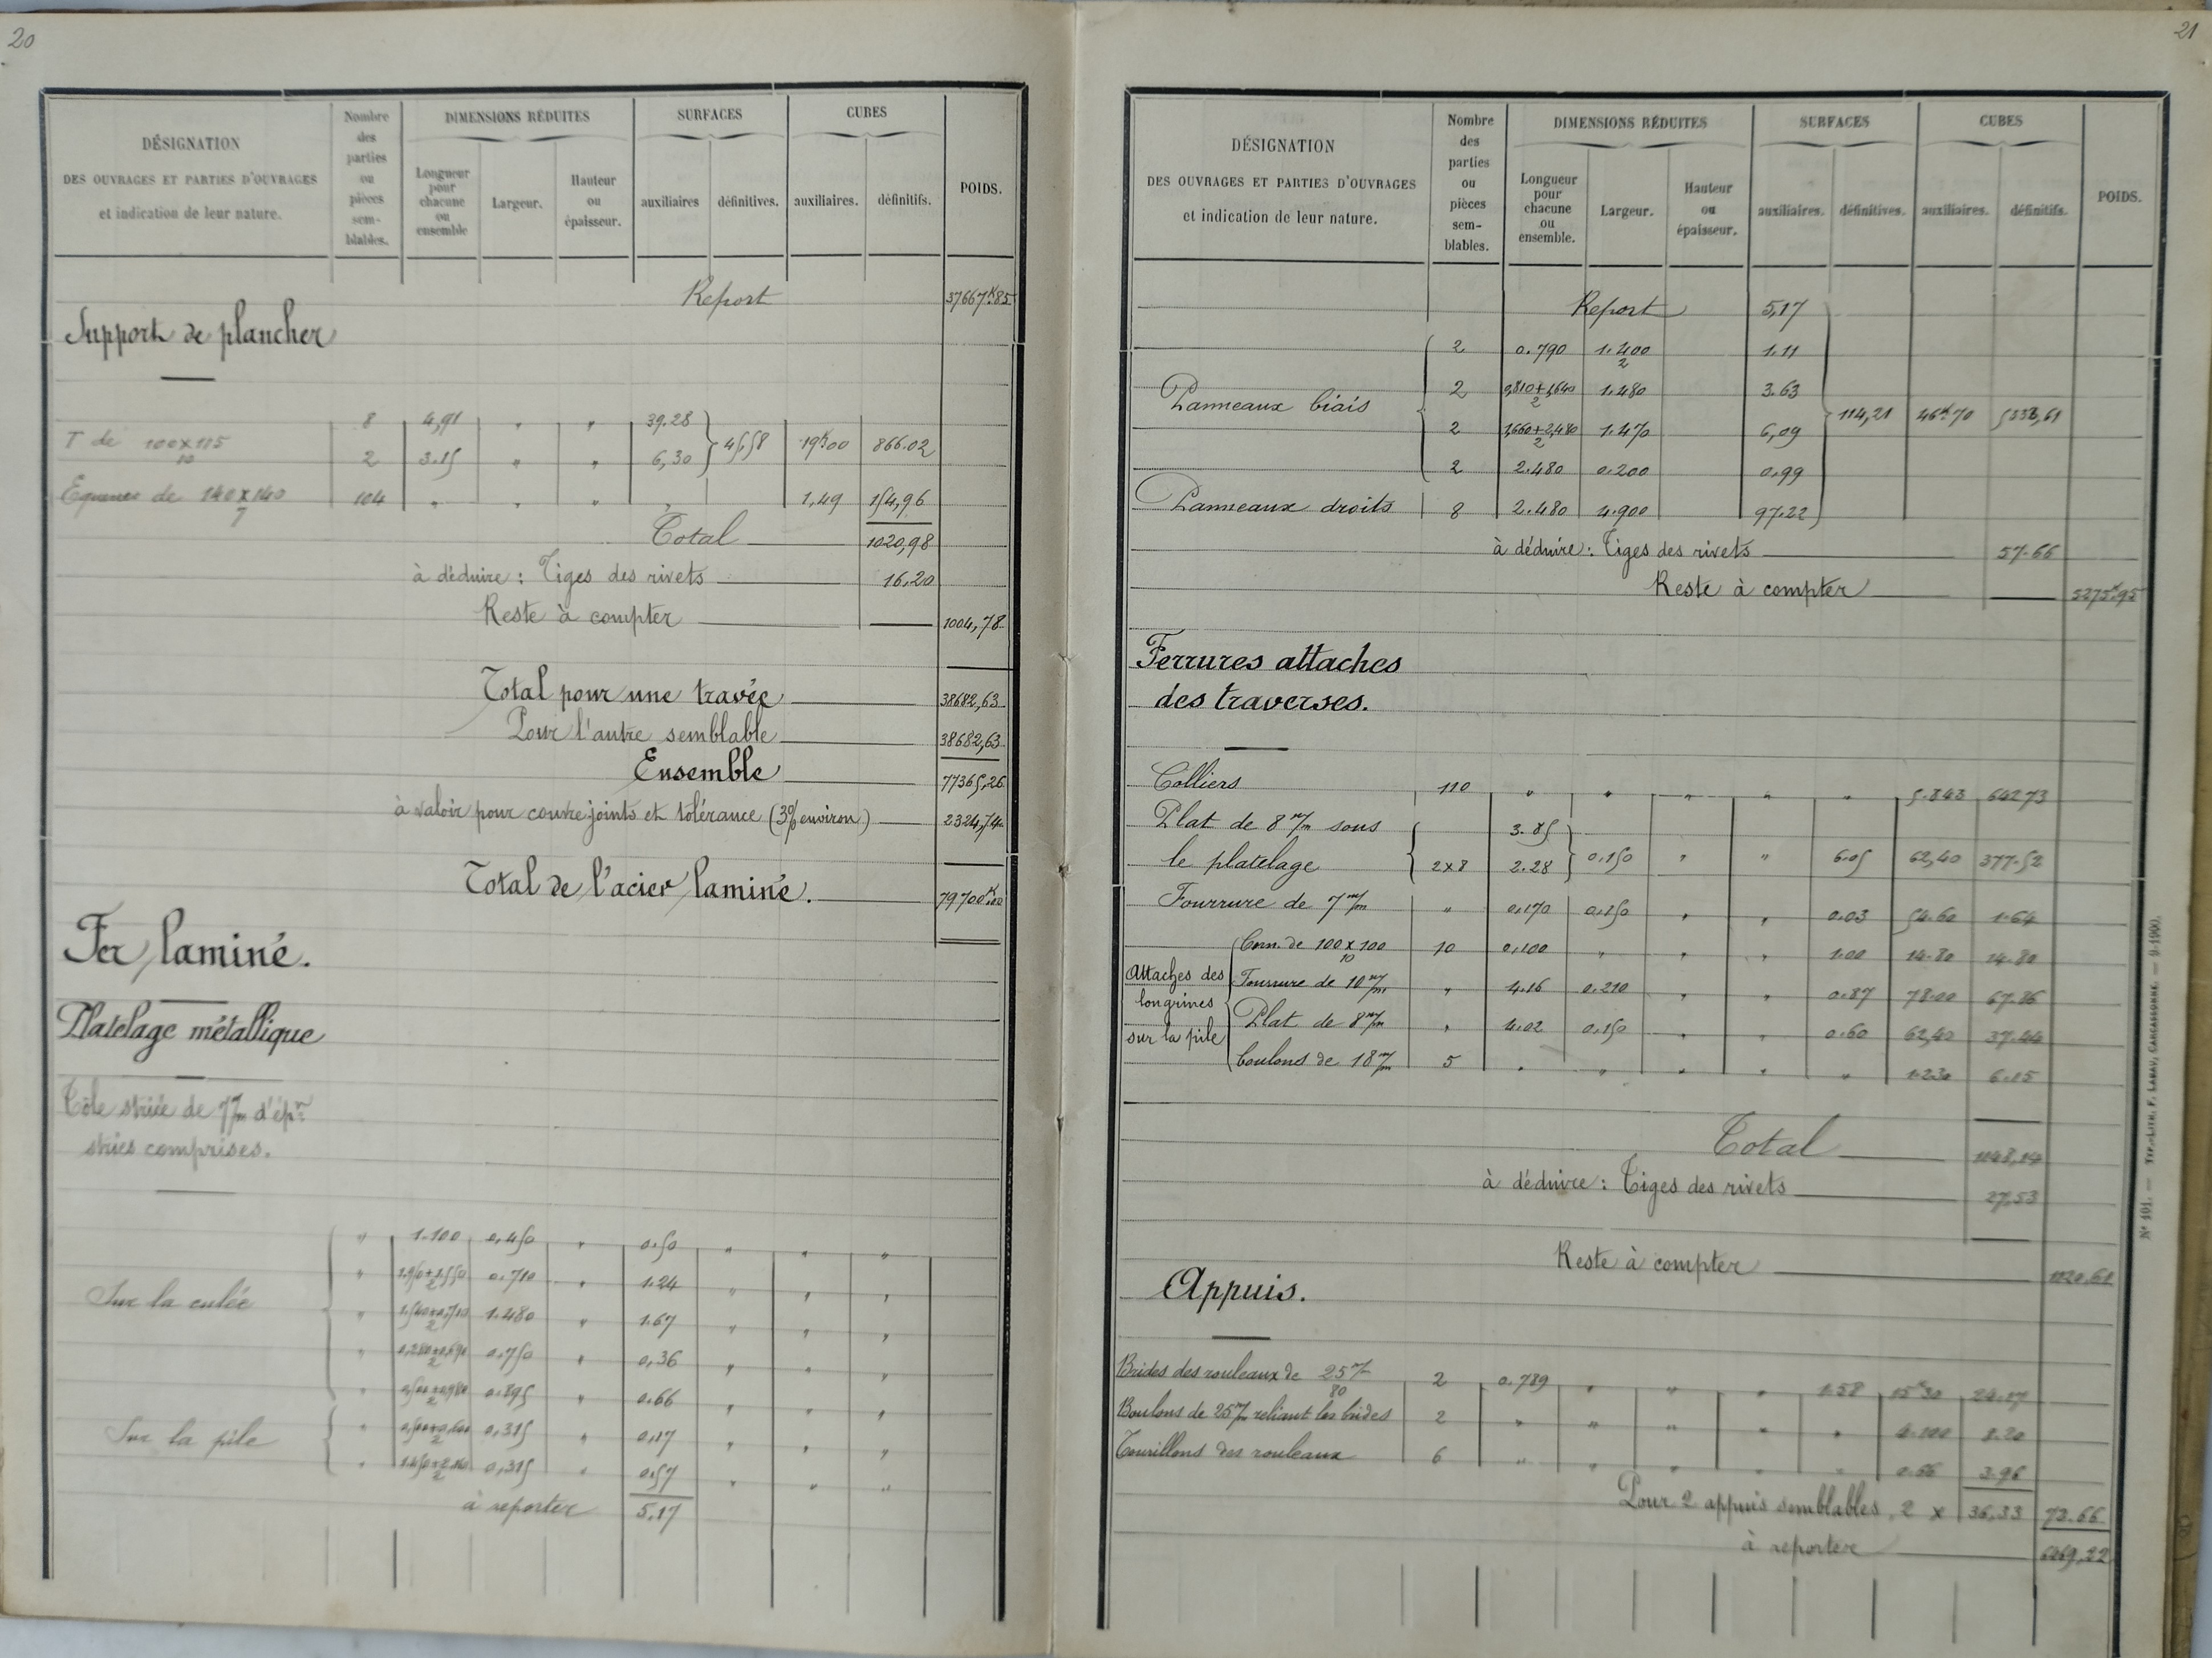 20
DÉSIGNATION
DES OUVRAGES ET PARTIES D'OUVRAGES
et indication de leur nature.
Nombre des parties ou pièces sem-blables.
DIMENSIONS RÉDUITES
Longueur pour chacune ou ensemble
Largeur.
Hauteur ou épaisseur.
SURFACES
auxiliaires
définitives.
CUBES
auxiliaires.
définitifs.
POIDS.
Report 37667K85
Support de plancher
8 4,91 " " 39.28
T de 100x115/10 45,58 19k00 866.02
2 3.15 " " 6,30
Equerres de 140x140/7 104 " " " " 1,49 154,96
Total 1020,98
à déduire : Tiges des rivets 16,20
Reste à compter 1004,78
Total pour une travée 38682,63
Pour l'autre semblable 38682,63
Ensemble 77365,26
à valoir pour couvre joints et tolérance (3% environ) 2324,74
Total de l'acier laminé. 79700K00
Fer laminé.
Platelage métallique
Tôle striée de 7m/m d'épr
stries comprises.
" 1.100 0,450 " 0.50 " " "
" 0.710 " 1.24 " " "
Sur la culée " 1.480 " 1.67 " " "
" 0.750 " 0,36 " " "
" 0.895 " 0.66 " " "
Sur la pile " 0,315 " 0,17 " " "
" 0,315 " 0.57 " " "
à reporter 5,17
21
DÉSIGNATION
DES OUVRAGES ET PARTIES D'OUVRAGES
et indication de leur nature.
Nombre des parties ou pièces sem-blables.
DIMENSIONS RÉDUITES
Longueur pour chacune ou ensemble.
Largeur.
Hauteur ou épaisseur.
SURFACES
auxiliaires.
définitives.
CUBES
auxiliaires.
définitifs.
POIDS.
Report 5,17
2 0.790 1.400/2 1.11
2 0,810+1,640/2 1.480 3.63
Panneaux biais 114,21 46k70 5333,61
2 1,660+2,480/2 1.470 6,09
2 2.480 0.200 0,99
Panneaux droits 8 2.480 4.900 97.22
à déduire : Tiges des rivets 57.66
Reste à compter 5275k95
Ferrures attaches
des traverses.
Colliers 110 " " " " " 5.843 642.73
Plat de 8m/m sous 3.85
le platelage 2x8 2.28 0.150 " " 6.05 62,40 377.52
Fourrure de 7m/m " 0.170 0.150 " " 0.03 54.60 1.64
Attaches des longrines sur la pile
Corn. de 100x100/10 10 0.100 " " " 1.00 14.80 14.80
Fourrure de 10m/m " 4.16 0.210 " " 0.87 78.00 67.86
Plat de 8m/m " 4.02 0.150 " " 0.60 62,40 37.44
Boulons de 18m/m 5 " " " " " 1.230 6.15
Total 1148,14
à déduire : Tiges des rivets 27,53
Reste à compter 1120,61
Appuis.
Brides des rouleaux de 25m/m/80 2 0.789 " " " 1.58 15k30 24.17
Boulons de 25m/m reliant les brides 2 " " " " " 4.100 8.20
Tourillons des rouleaux 6 " " " " " 0.66 3.96
Pour 2 appuis semblables, 2 x 36,33 72.66
à reporter 6469,22
No 101. — TYP.-LITH. F. LABAU, CARCASSONNE. — 9-1900.